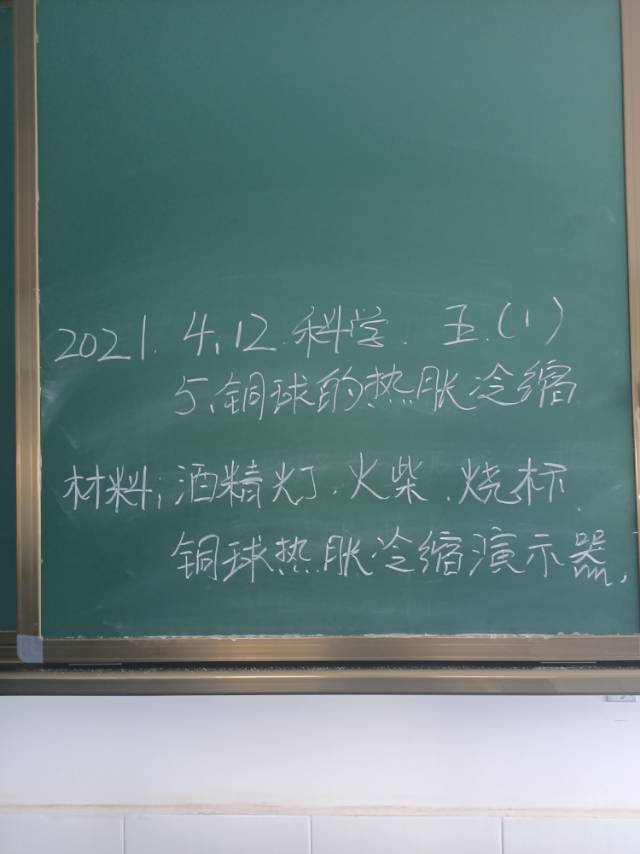 2021.4.12.科学. 五.(1)
5.铜球的热胀冷缩
材料:酒精灯.火柴.烧杯.
铜球热胀冷缩演示器.